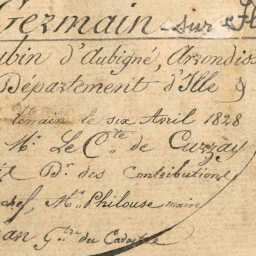 Germain sur
ubin d'Aubigné, Arrondiss
Département d'Ille &
terrain le six Avril 1828
Mr. Le Cte de Curzay
Dr. des Contributions
chef, Mr. Philouse
Gtre du Cadastre